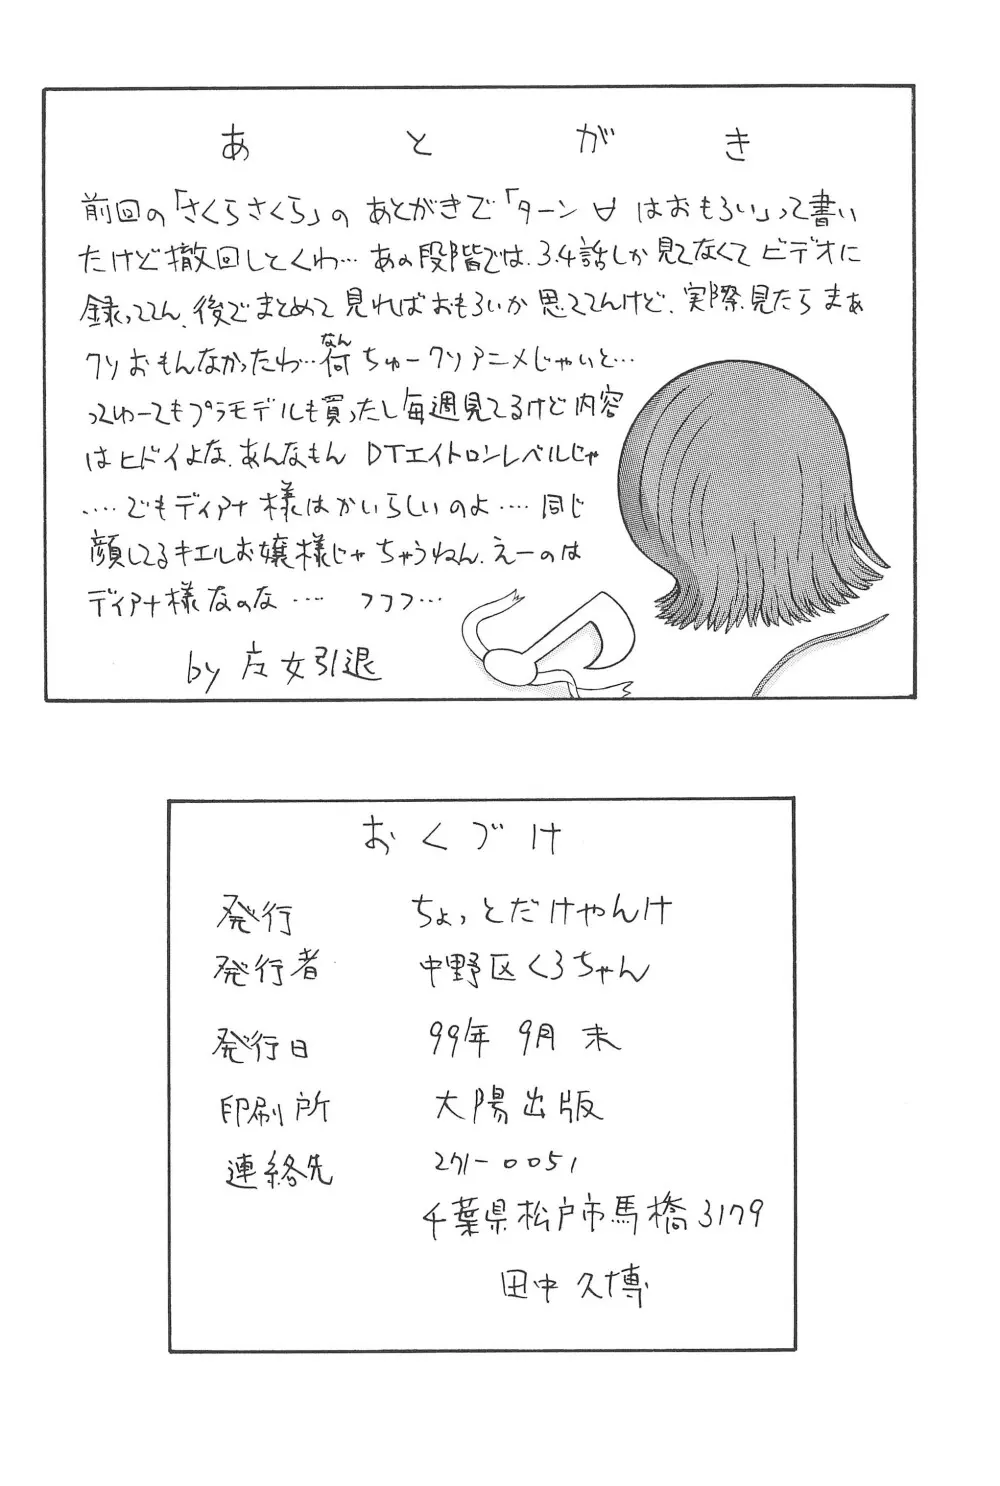 あとがき
前回の「さくらさくら」のあとがきで「ターン∀はおもろい」って書い
たけど撤回しとくわ…あの段階では、3.4話しか見てなくてビデオに
録っててん、後でまとめて見ればおもろいか思ててんけど、実際見たらまぁ
クソおもんなかったわ…何ちゅークソアニメじゃいと…
なん
ってゆーてもプラモデルも買ったし毎週見てるけど内容
はヒドイよな、あんなもんDTエイトロンレベルじゃ
‥‥でもディアナ様はかいらしいのよ‥‥同じ
顔してるキエルお嬢様じゃちゃうねん、えーのは
ディアナ様なのな‥‥フフフ…
by 女引退
おくづけ
発行 ちょっとだけやんけ
発行者 中野区くろちゃん
発行日 99年9月末
印刷所 大陽出版
連絡先 271-0051
千葉県松戸市馬橋3179
田中久博